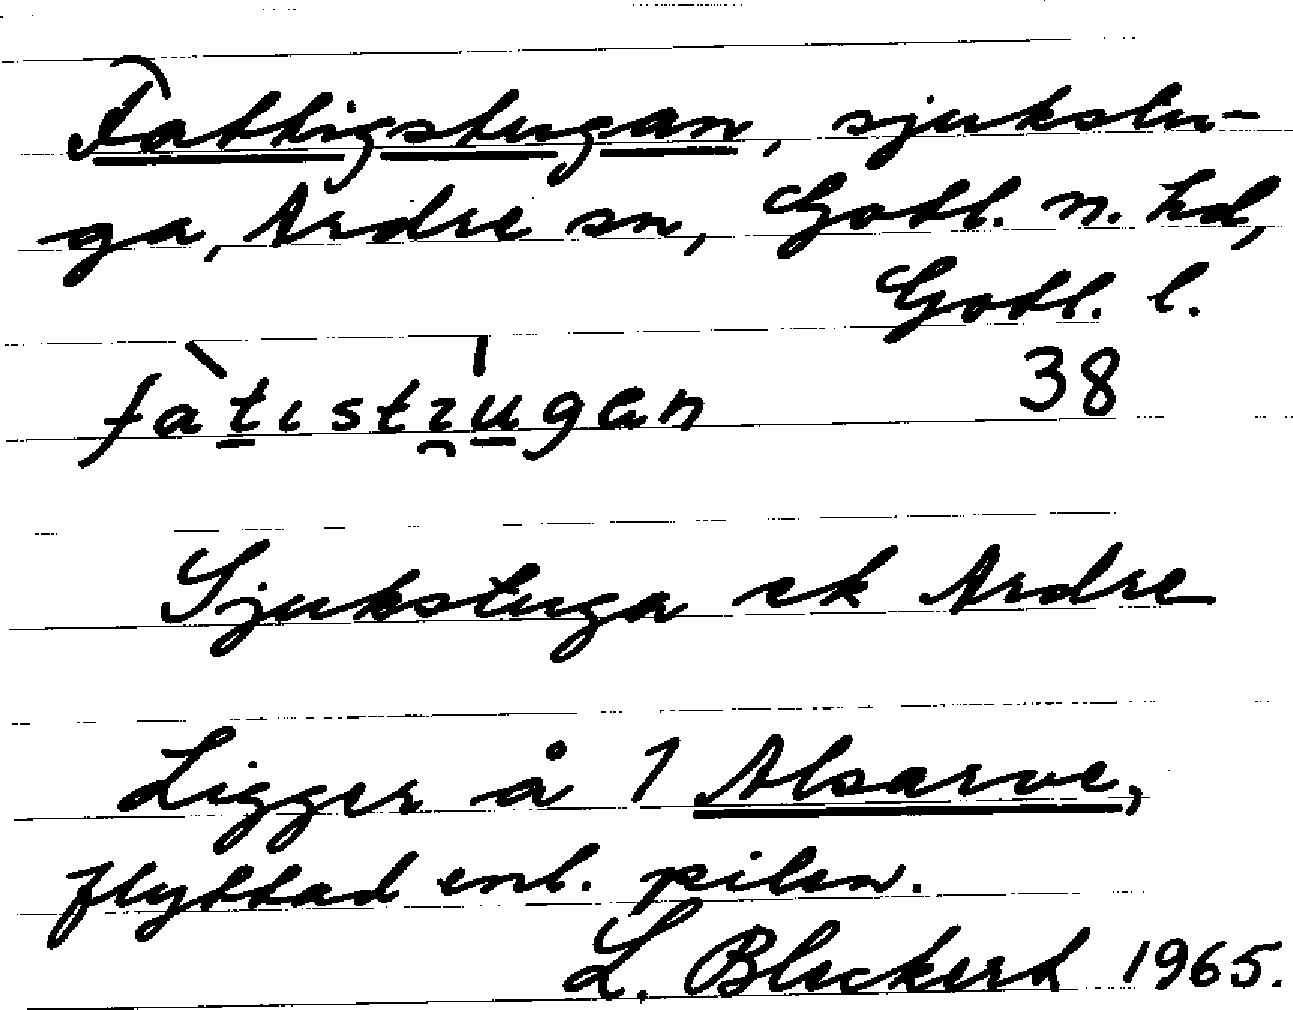 Fattigstugan, sjukstu-
ga, Ardre sn, Gotl. n. hd,
Gotl. l.
38
fàtıstꞮ̯ugan
Sjukstuga ek Ardre
Ligger å 1 Alsarve,
flyttad enl. pilen.
L. Bleckert 1965.